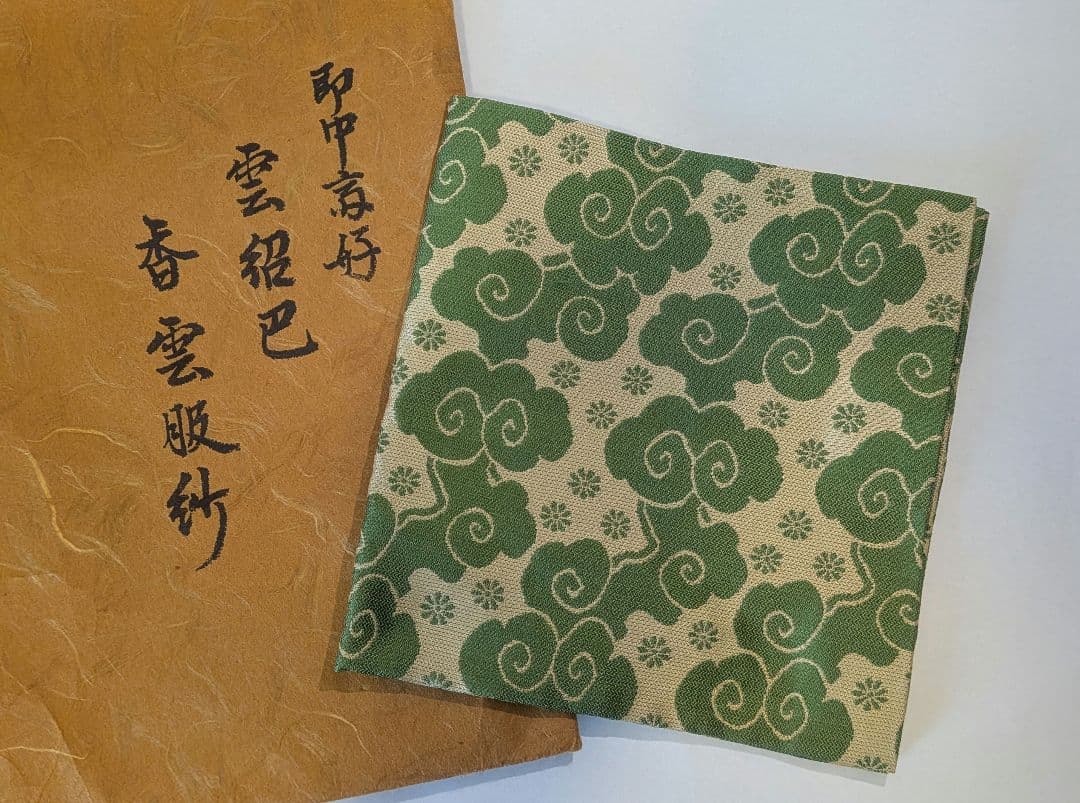 即中斎好
雲紹巴
香雲服紗